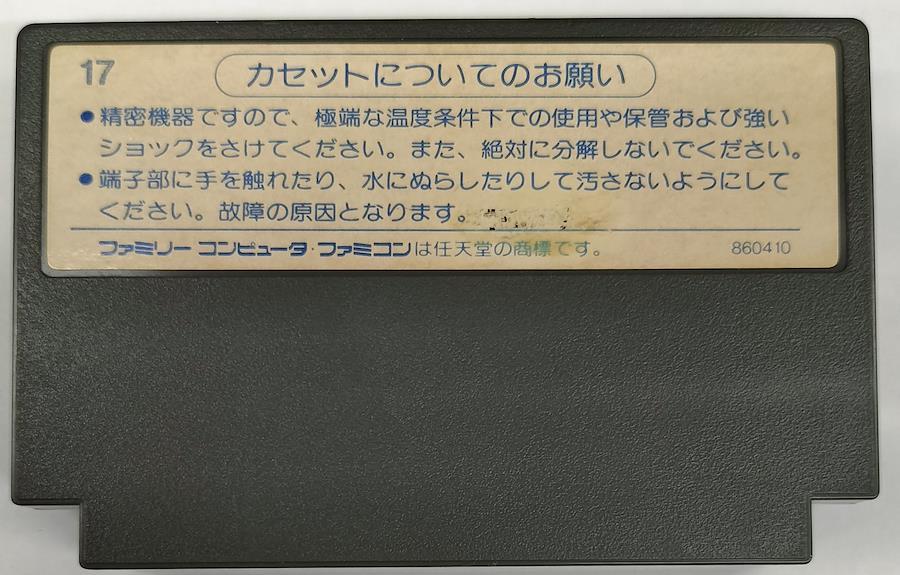 17
カセットについてのお願い
●精密機器ですので、極端な温度条件下での使用や保管および強い
ショックをさけてください。また、絶対に分解しないでください。
●端子部に手を触れたり、水にぬらしたりして汚さないようにして
ください。故障の原因となります。
ファミリー コンピュータ・ファミコンは任天堂の商標です。
860410